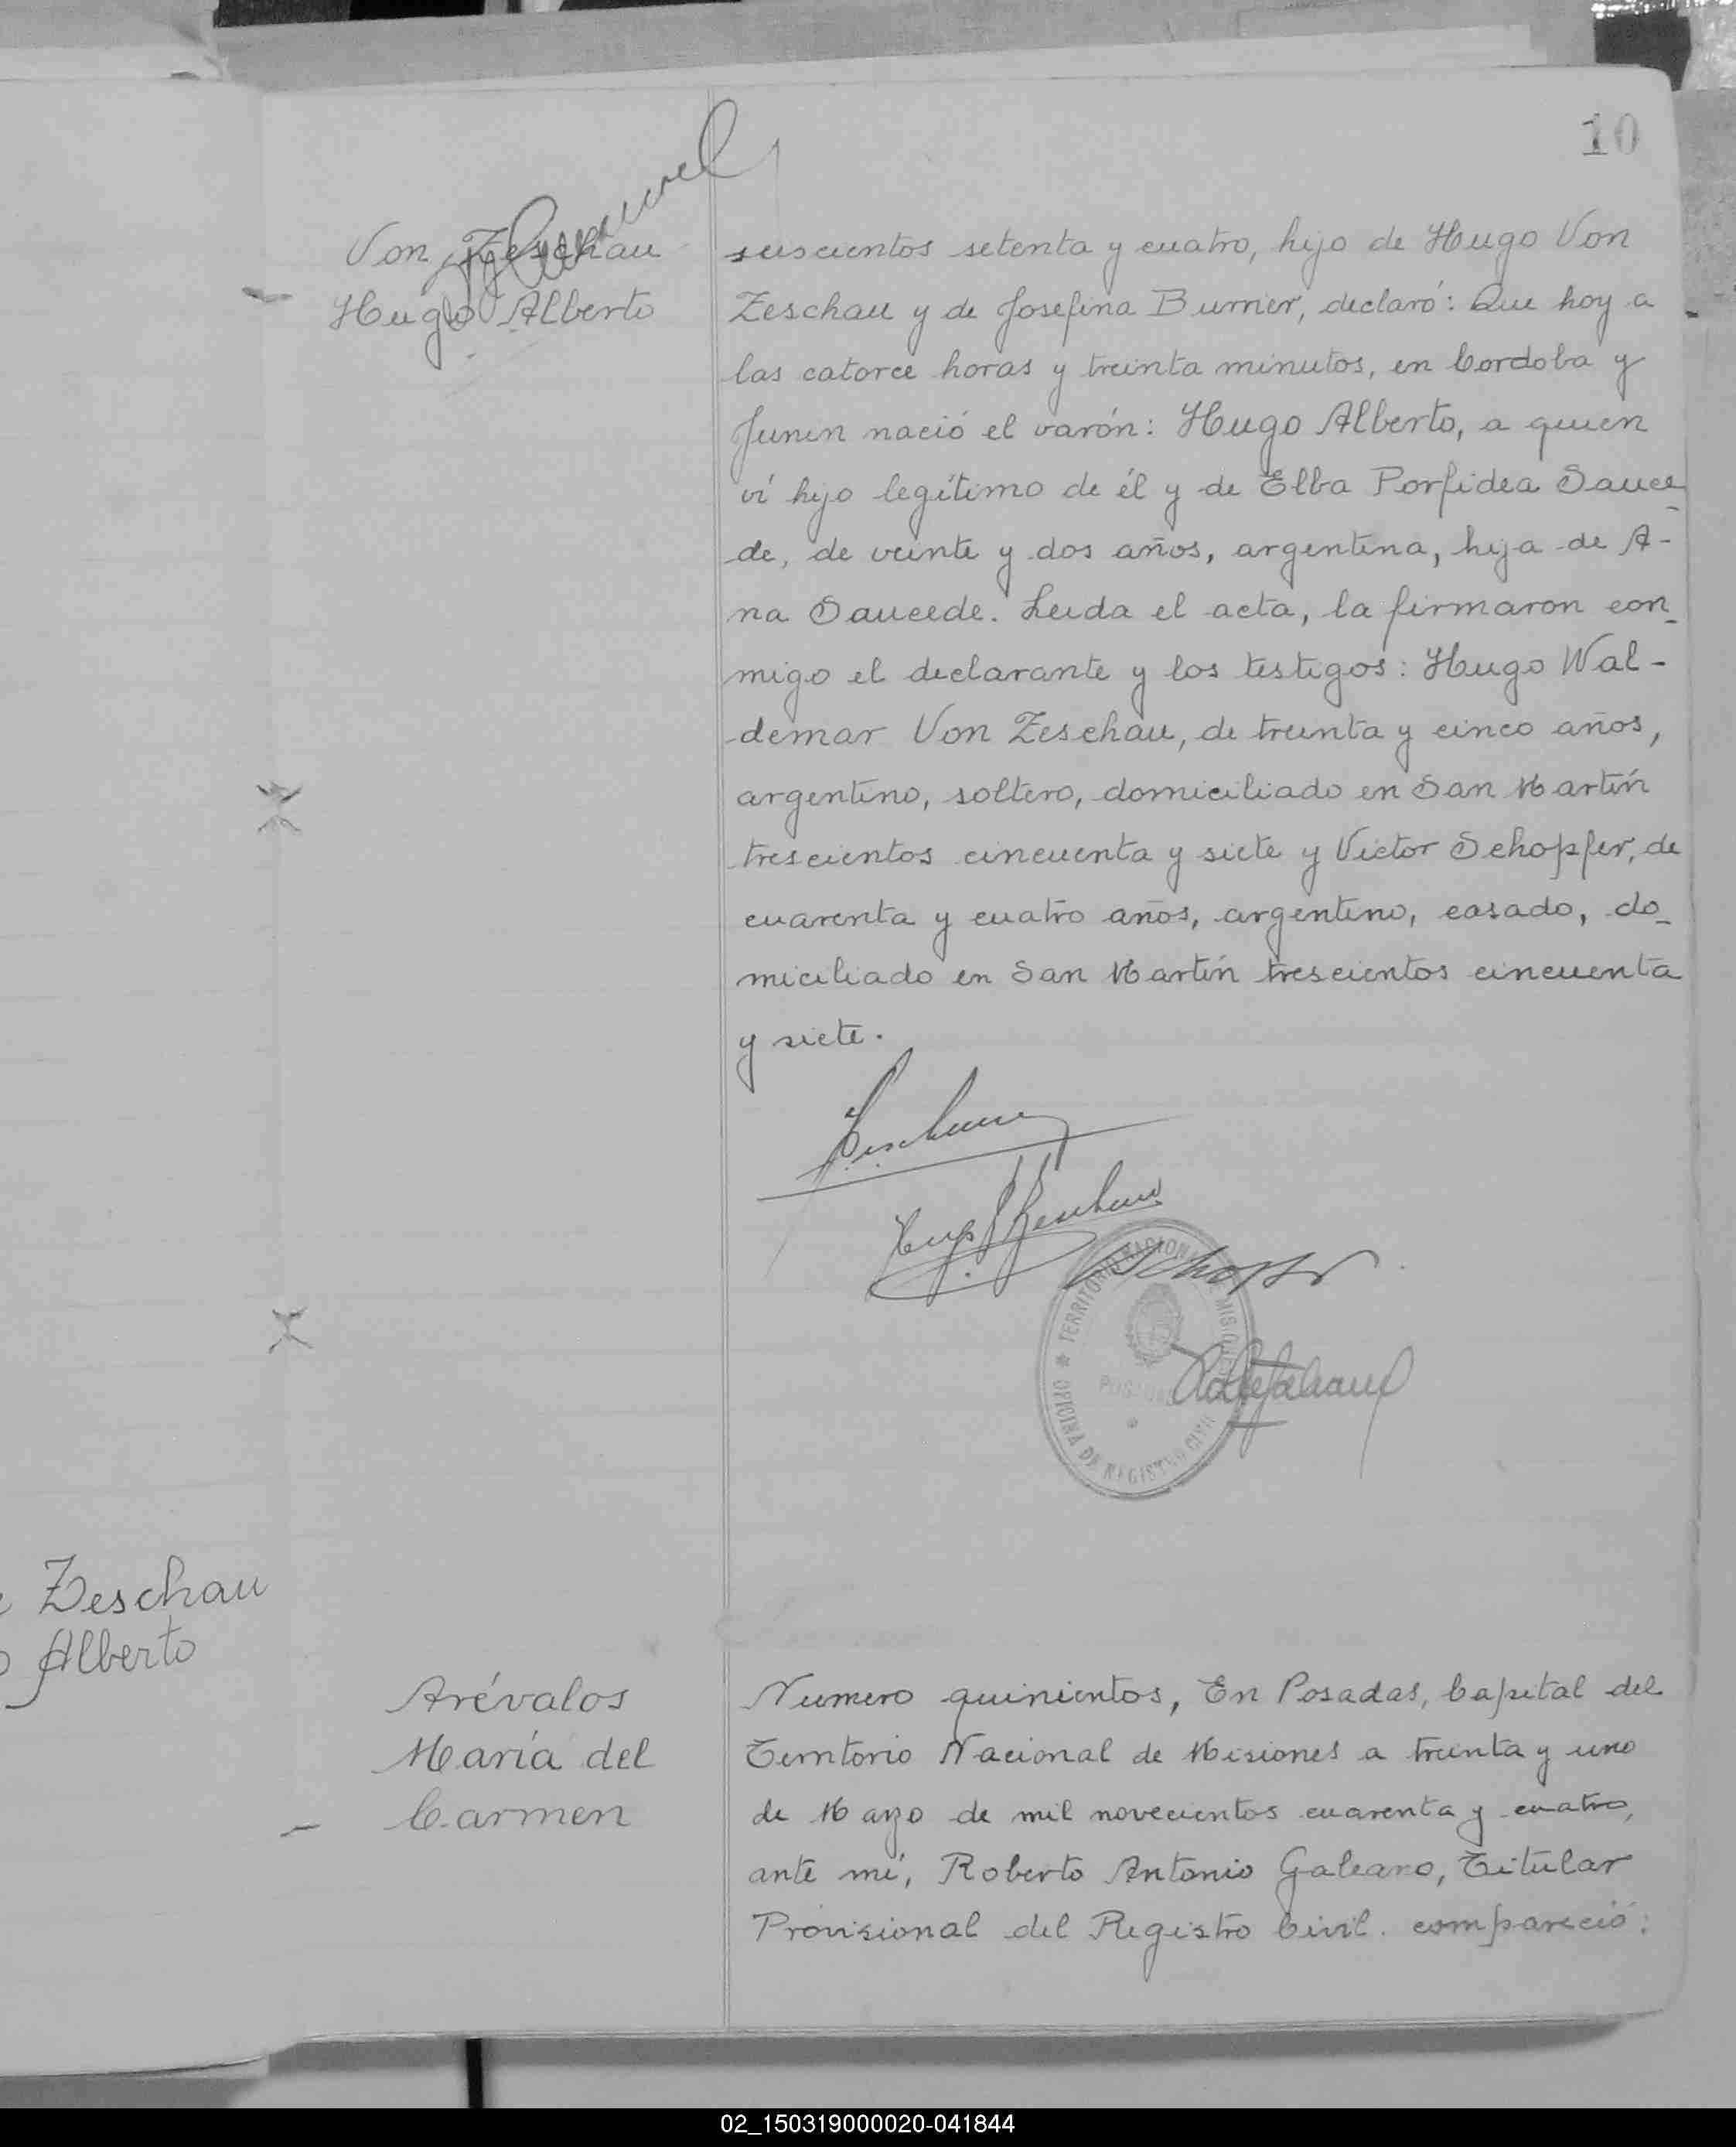 10
Von Zeschau
Hugo Alberto
seiscientos setenta y cuatro, hijo de Hugo Von
Zeschau y de Josefina Burrier, declaró: Que hoy a
las catorce horas y treinta minutos, en Cordoba y
Junin nació el varón: Hugo Alberto, a quien
ví hijo legítimo de él y de Elba Porfidea Sauce_
de, de veinte y dos años, argentina, hija de A-
na Saucede. Leida el acta, la firmaron con_
migo el declarante y los testigos: Hugo Wal-
demar Von Zeschau, de treinta y cinco años,
argentino, soltero, domiciliado en San Martín
trescientos cincuenta y siete y Victor Schopfer, de
cuarenta y cuatro años, argentino, casado, do_
miciliado en San Martín trescientos cincuenta
y siete.
Zeschau
Hugo Zeschau
Schopfer
TERRITORIO NACIONAL DE MISIONES
POSADAS
OFICINA DE REGISTRO CIVIL
Zeschau
Alberto
Arévalos
María del
Carmen
Numero quinientos, En Posadas, Capital del
Territorio Nacional de Misiones a treinta y uno
de Mayo de mil novecientos cuarenta y cuatro,
ante mí, Roberto Antonio Galeano, Titular
Provisional del Registro Civil. compareció:
02_150319000020-041844